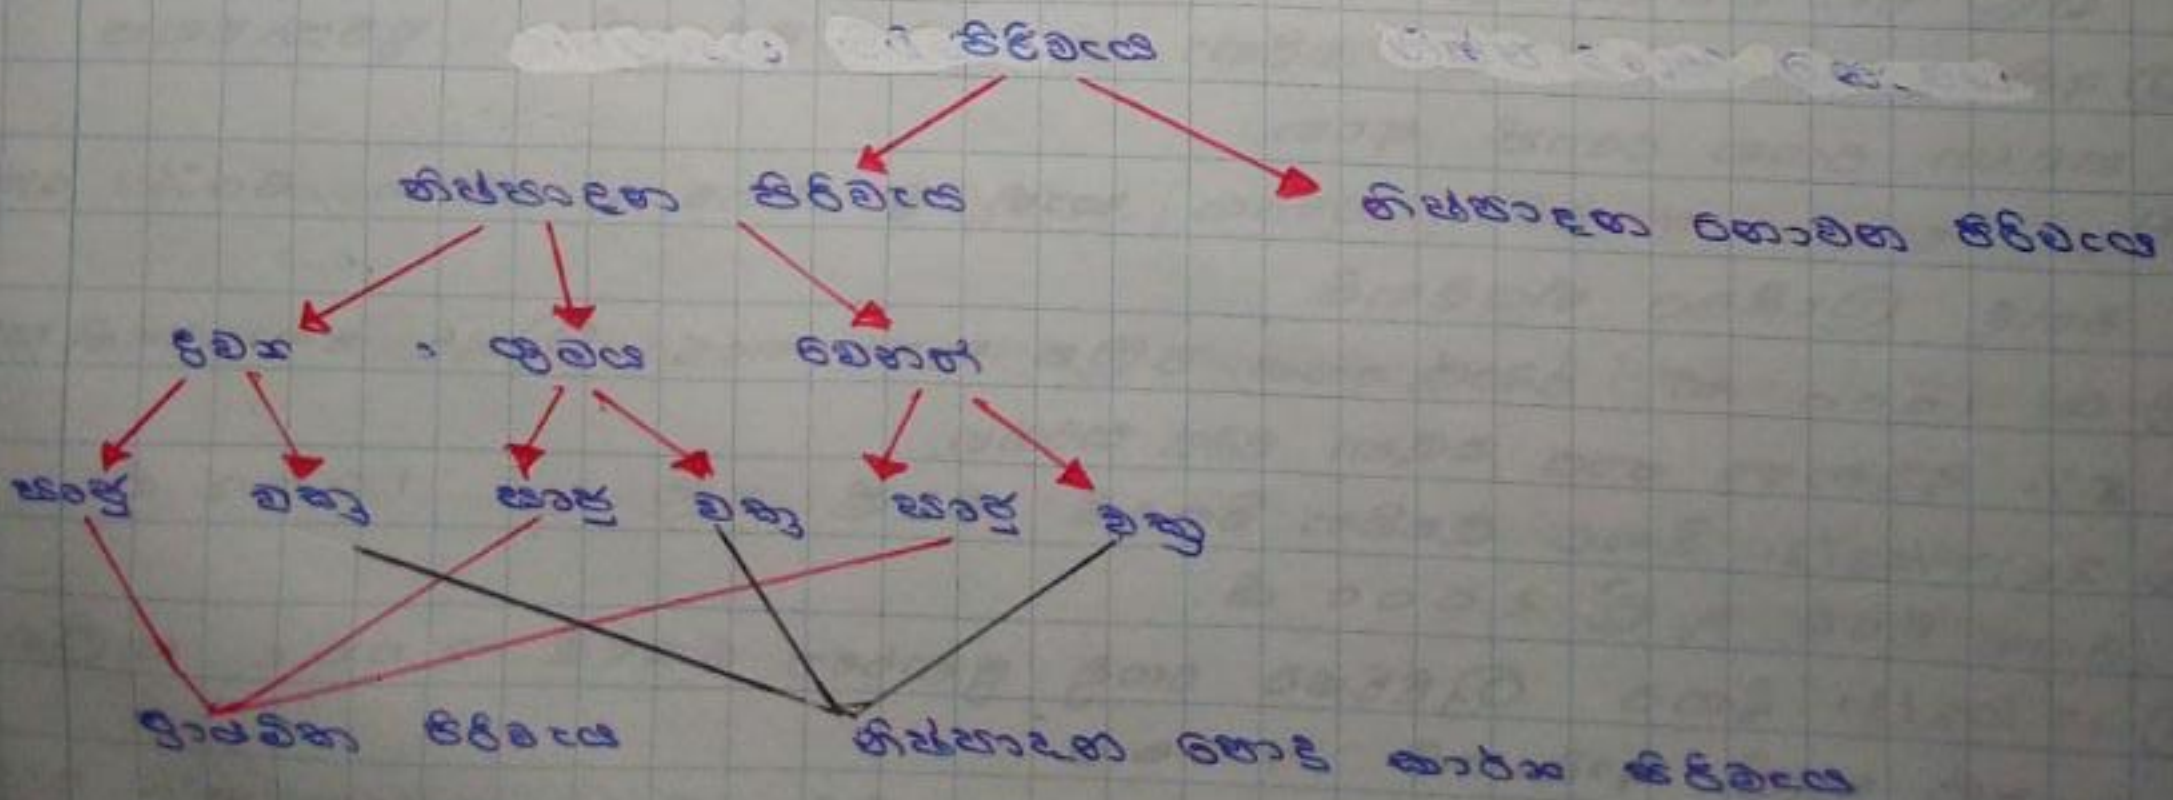 පිරිවැය
නිෂ්පාදන පිරිවැය
නිෂ්පාදන නොවන පිරිවැය
ද්‍රව්‍ය ශ්‍රමය වෙනත්
සෘජු වක්‍ර සෘජු වක්‍ර සෘජු වක්‍ර
ප්‍රාථමික පිරිවැය
නිෂ්පාදන පොදු කාර්ය පිරිවැය